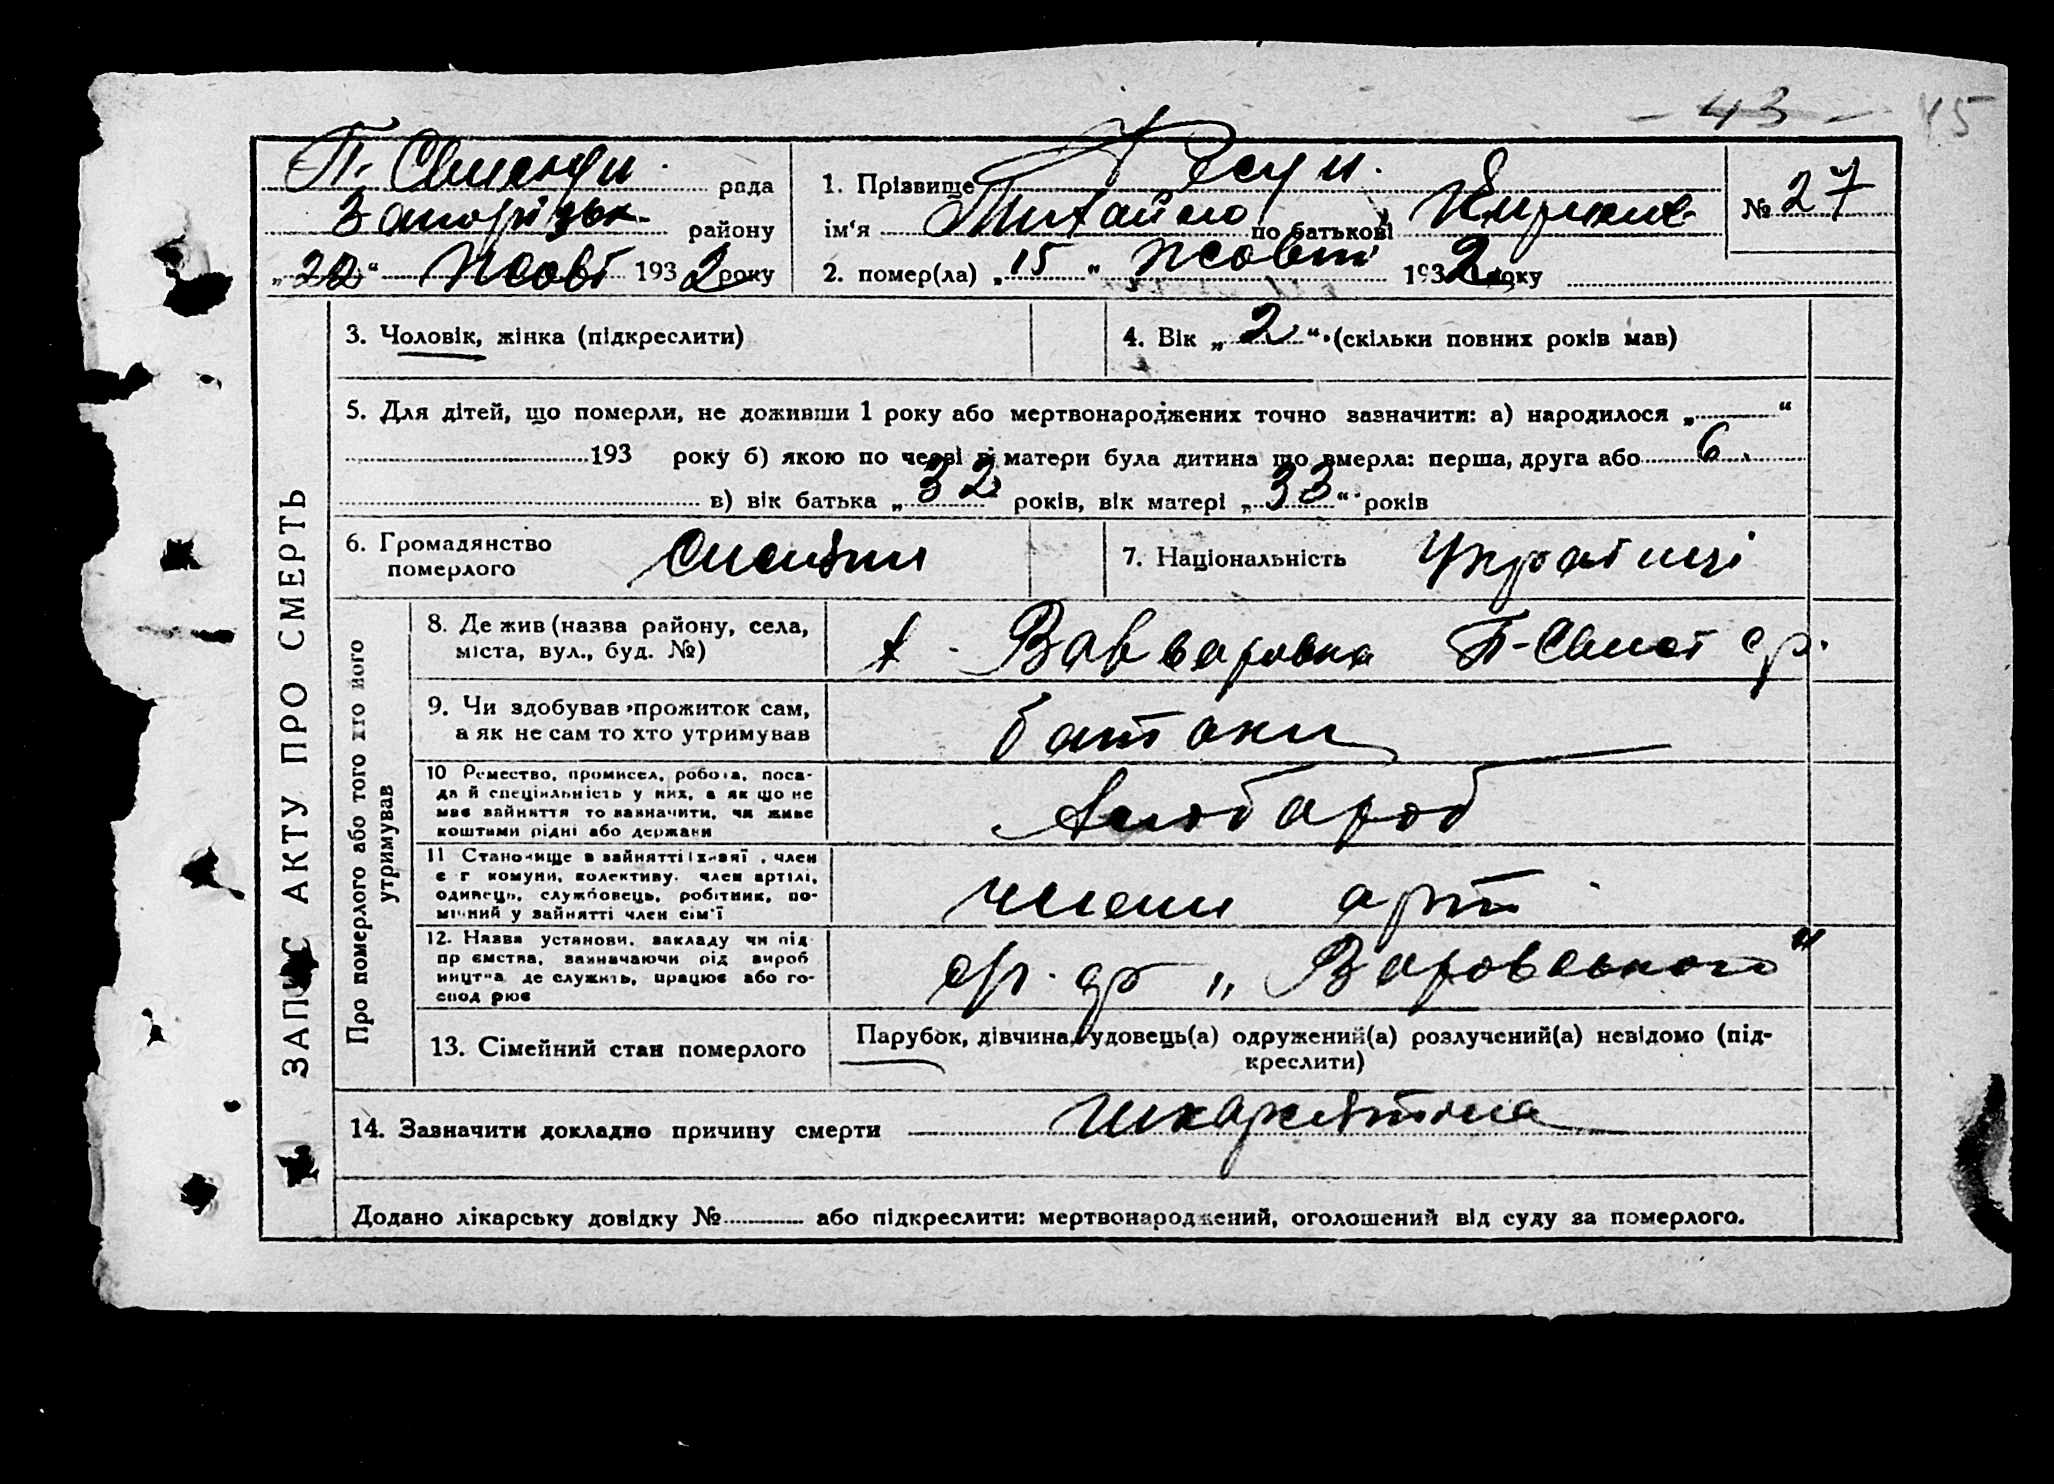 - 43 - 45
П. Свисту́н рада
Запорізьк. району
„22“ Жовт 1932 року
1. Прізвище Чесун.
ім‘я Михайло по батькові
№ 27
2. помер(ла) „15“ Жовтн 1932 року
3. Чоловік, жінка (підкреслити)
4. Вік „2“ (скільки повних років мав)
5. Для дітей, що померли, не доживши 1 року або мертвонароджених точно зазначити: а) народилося „ “
193 року б) якою по черзі в матери була дитина що вмерла: перша, друга або 6
в) вік батька „32 років, вік матері „33“ років
6. Громадянство
померлого
7. Національність Україн
8. Де жив (назва району, села,
міста, вул., буд. №)
х. Варваровка П-Свист с/р.
9. Чи здобував прожиток сам,
а як не сам то хто утримував
батьки
10 Ремество, промисел, робота, поса-
да й спеціяльність у них, а як що не
має зайняття то зазначити, чи живе
коштами рідні або держави
хлібороб
11 Становище в зайнятті (хазяї, член
с г комуни, колективу, член артілі,
одинець, службовець, робітник, по-
мічний у зайнятті член сім‘ї
члени арт
12. Назва установи, закладу чи під
приємства, зазначаючи рід вироб
ництва де служить, працює або го-
сподарює
„Воровського“
13. Сімейний стан померлого
Парубок, дівчина, удовець(а) одружений(а) розлучений(а) невідомо (під-
креслити)
14. Зазначити докладно причину смерти шкарлятина
Додано лікарську довідку № або підкреслити: мертвонароджений, оголошений від суду за померлого.
ЗАПИС АКТУ ПРО СМЕРТЬ
Про померлого або того хто його
утримував